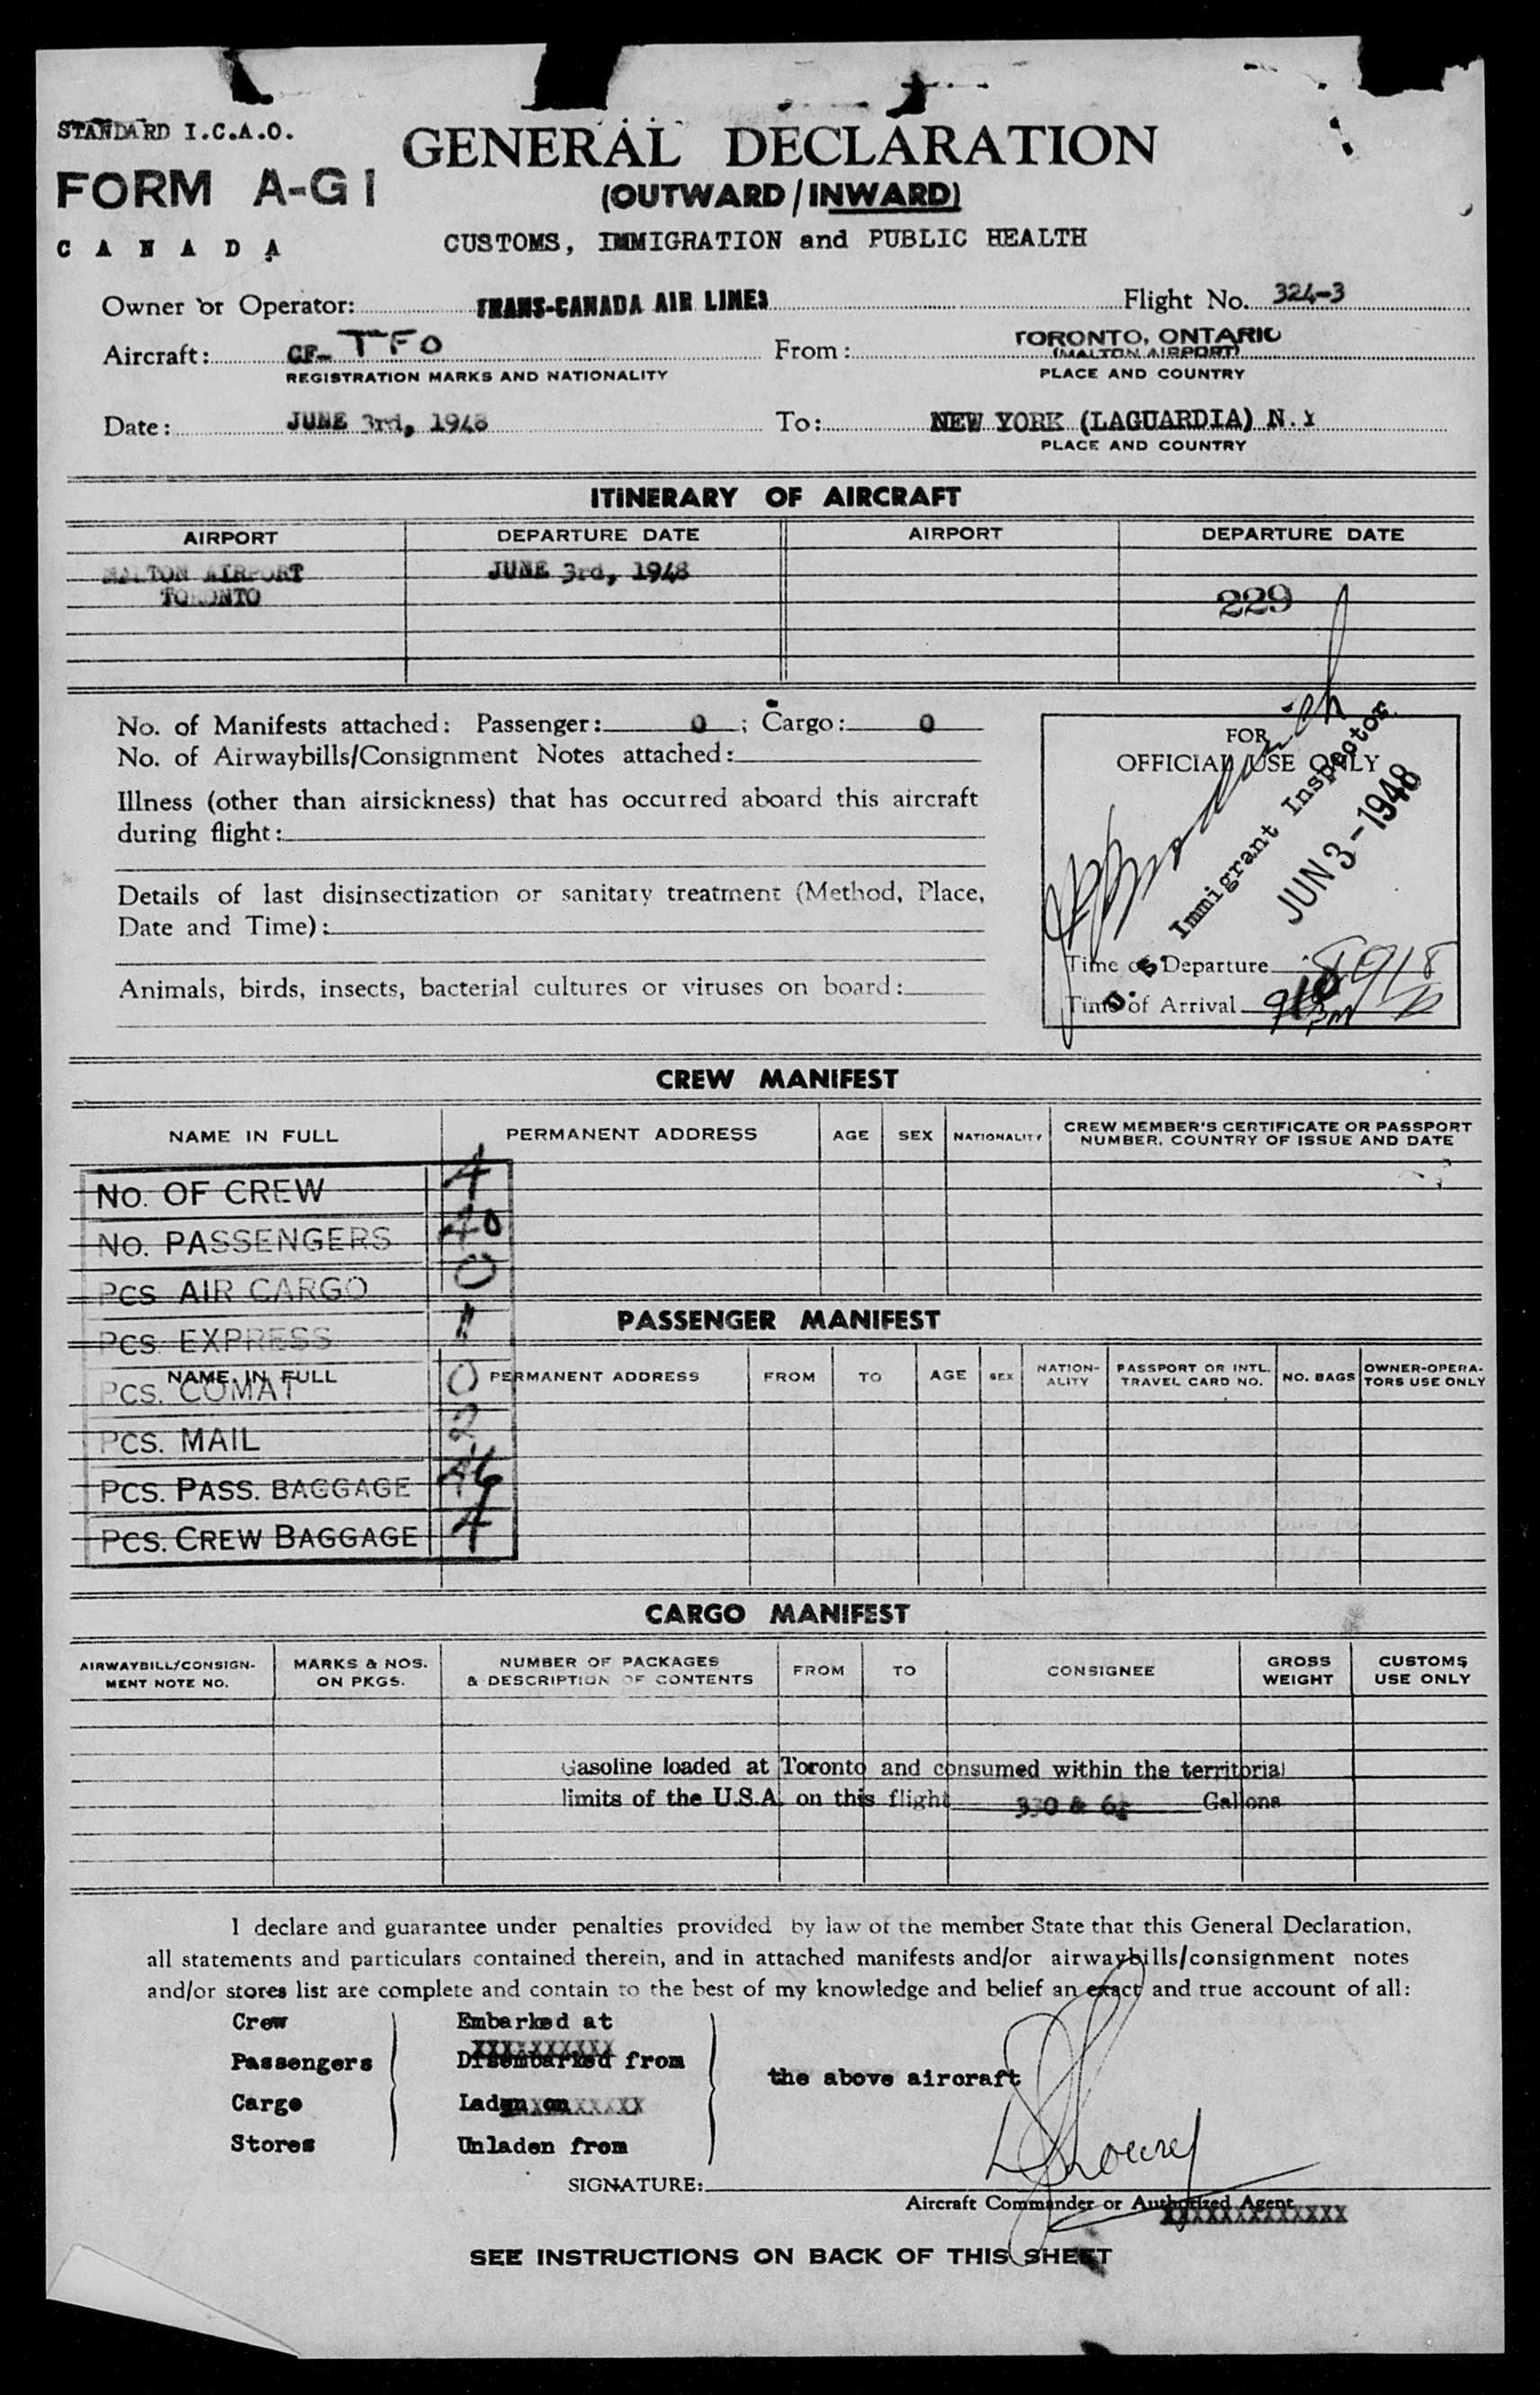 STANDARD I.C.A.O.
FORM A-G1
CANADA
GENERAL DECLARATION
(OUTWARD/INWARD)
CUSTOMS, IMMIGRATION and PUBLIC HEALTH
Owner or Operator: TRANS-CANADA AIR LINES Flight No. 324-3
Aircraft: CF- TFO From: TORONTO, ONTARIO
(MALTON AIRPORT)
REGISTRATION MARKS AND NATIONALITY PLACE AND COUNTRY
Date: JUNE 3rd, 1948 To: NEW YORK (LAGUARDIA) N.Y
PLACE AND COUNTRY
ITINERARY OF AIRCRAFT
AIRPORT DEPARTURE DATE AIRPORT DEPARTURE DATE
MALTON AIRPORT JUNE 3rd, 1948
TORONTO 229
No. of Manifests attached: Passenger: 0 ; Cargo: 0
No. of Airwaybills/Consignment Notes attached:
Illness (other than airsickness) that has occurred aboard this aircraft
during flight:
Details of last disinsectization or sanitary treatment (Method, Place,
Date and Time):
Animals, birds, insects, bacterial cultures or viruses on board:
FOR
OFFICIAL USE ONLY
U. S. Immigrant Inspector
JUN 3-1948
Time of Departure
Time of Arrival
CREW MANIFEST
NAME IN FULL PERMANENT ADDRESS AGE SEX NATIONALITY CREW MEMBER'S CERTIFICATE OR PASSPORT
NUMBER, COUNTRY OF ISSUE AND DATE
NO. OF CREW 4
NO. PASSENGERS 40
PCS AIR CARGO 0
PCS. EXPRESS 1
PCS. COMAT 0
PCS. MAIL 2
PCS. PASS. BAGGAGE 46
PCS. CREW BAGGAGE 4
PASSENGER MANIFEST
NAME IN FULL PERMANENT ADDRESS FROM TO AGE SEX NATION-
ALITY PASSPORT OR INTL.
TRAVEL CARD NO. NO. BAGS OWNER-OPERA-
TORS USE ONLY
CARGO MANIFEST
AIRWAYBILL/CONSIGN-
MENT NOTE NO. MARKS & NOS.
ON PKGS. NUMBER OF PACKAGES
& DESCRIPTION OF CONTENTS FROM TO CONSIGNEE GROSS
WEIGHT CUSTOMS
USE ONLY
Gasoline loaded at Toronto and consumed within the territorial
limits of the U.S.A. on this flight 330 & Gallons
I declare and guarantee under penalties provided by law of the member State that this General Declaration,
all statements and particulars contained therein, and in attached manifests and/or airwaybills/consignment notes
and/or stores list are complete and contain to the best of my knowledge and belief an exact and true account of all:
Crew Embarked at
Passengers Disembarked from
the above aircraft
Cargo Laden on
Stores Unladen from
SIGNATURE:
Aircraft Commander or Authorized Agent
SEE INSTRUCTIONS ON BACK OF THIS SHEET